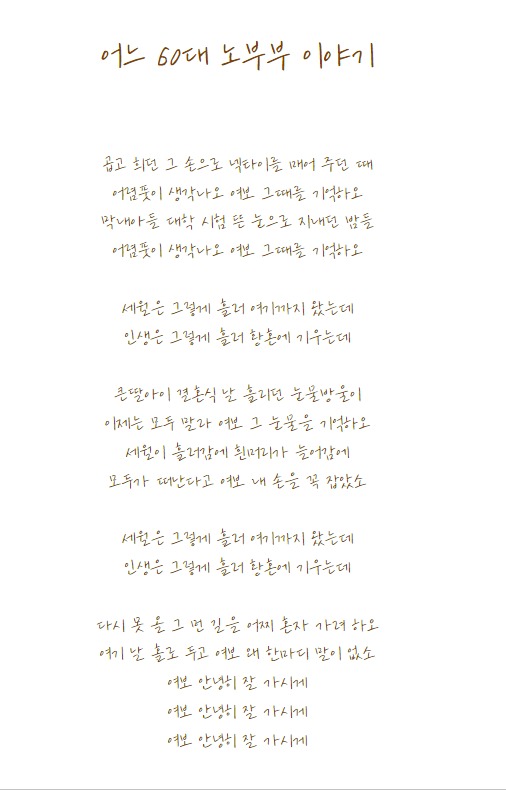 어느 60대 노부부 이야기
곱고 희던 그 손으로 넥타이를 매어 주던 때
어렴풋이 생각나오 여보 그때를 기억하오
막내아들 대학 시험 뜬 눈으로 지내던 밤들
어렴풋이 생각나오 여보 그때를 기억하오
세월은 그렇게 흘러 여기까지 왔는데
인생은 그렇게 흘러 황혼에 기우는데
큰딸아이 결혼식 날 흘리던 눈물방울이
이제는 모두 말라 여보 그 눈물을 기억하오
세월이 흘러감에 흰머리가 늘어감에
모두가 떠난다고 여보 내 손을 꼭 잡았소
세월은 그렇게 흘러 여기까지 왔는데
인생은 그렇게 흘러 황혼에 기우는데
다시 못 올 그 먼 길을 어찌 혼자 가려 하오
여기 날 홀로 두고 여보 왜 한마디 말이 없소
여보 안녕히 잘 가시게
여보 안녕히 잘 가시게
여보 안녕히 잘 가시게